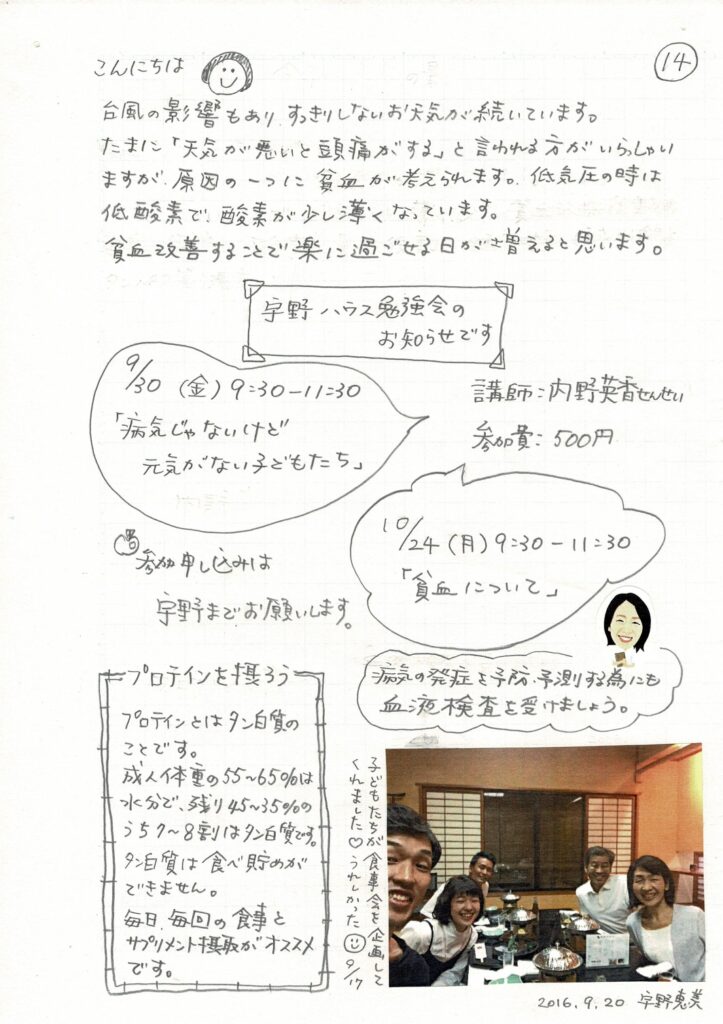 ⑭
こんにちは
台風の影響もあり、すっきりしないお天気が続いています。
たまに「天気が悪いと頭痛がする」と言われる方がいらっしゃい
ますが、原因の一つに貧血が考えられます。低気圧の時は
低酸素で、酸素が少し薄くなっています。
貧血改善することで楽に過ごせる日が増えると思います。
宇野ハウス勉強会の
お知らせです
9/30（金）9:30-11:30
「病気じゃないけど
元気がない子どもたち」
講師:内野英香せんせい
参加費:500円
10/24（月）9:30-11:30
「貧血について」
参加申し込みは
宇野までお願いします。
病気の発症を予防・予測する為にも
血液検査を受けましょう。
プロテインを摂ろう
プロテインとはタン白質の
ことです。
成人体重の55~65%は
水分で、残り45~35%の
うち7~8割はタン白質です。
タン白質は食べ貯めが
できません。
毎日、毎回の食事と
サプリメント摂取がオススメ
です。
子どもたちが食事会を企画して
くれました♡うれしかった 9/17
2016.9.20 宇野恵美